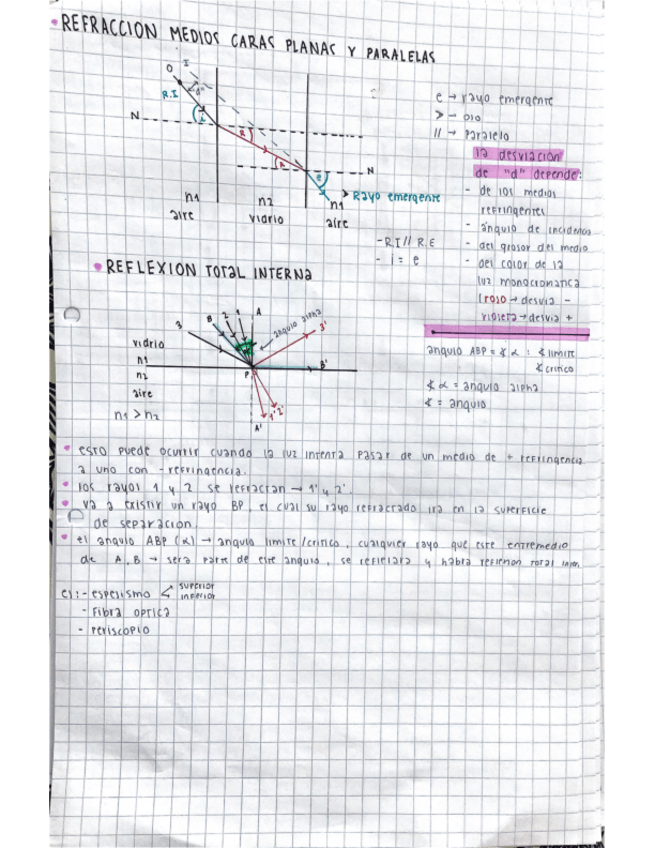 • REFRACCION MEDIOS CARAS PLANAS Y PARALELAS
O I
R.I "d"
N i R R e N
> Rayo emergente
n1 n2 n1
aire vidrio aire
- R.I // R.E
- i = e
e → rayo emergente
> → ojo
// → paralelo
la desviación
de "d" depende:
- de los medios
refringentes
- angulo de incidencia
- del grosor del medio
- del color de la
luz monocromatica
(rojo → desvia -
violeta → desvia +
• REFLEXION TOTAL INTERNA
3 B 2 1 A angulo alpha 3'
vidrio
n1 P B'
n2
aire
n1 > n2
1' 2'
A'
angulo ABP = ∢ α : ∢ limite
∢ critico
∢ α = angulo alpha
∢ = angulo
• esto puede ocurrir cuando la luz intenta pasar de un medio de + refringencia
a uno con - refringencia.
• los rayos 1 y 2 se refractan → 1' y 2'.
• va a existir un rayo BP, el cual su rayo refractado ira en la superficie
de separación.
• el angulo ABP (α) → angulo limite/critico, cualquier rayo que este entremedio
de A, B → sera parte de este angulo, se reflejara y habra reflexion total
ej: - espejismo < superior
inferior
- Fibra optica
- periscopio